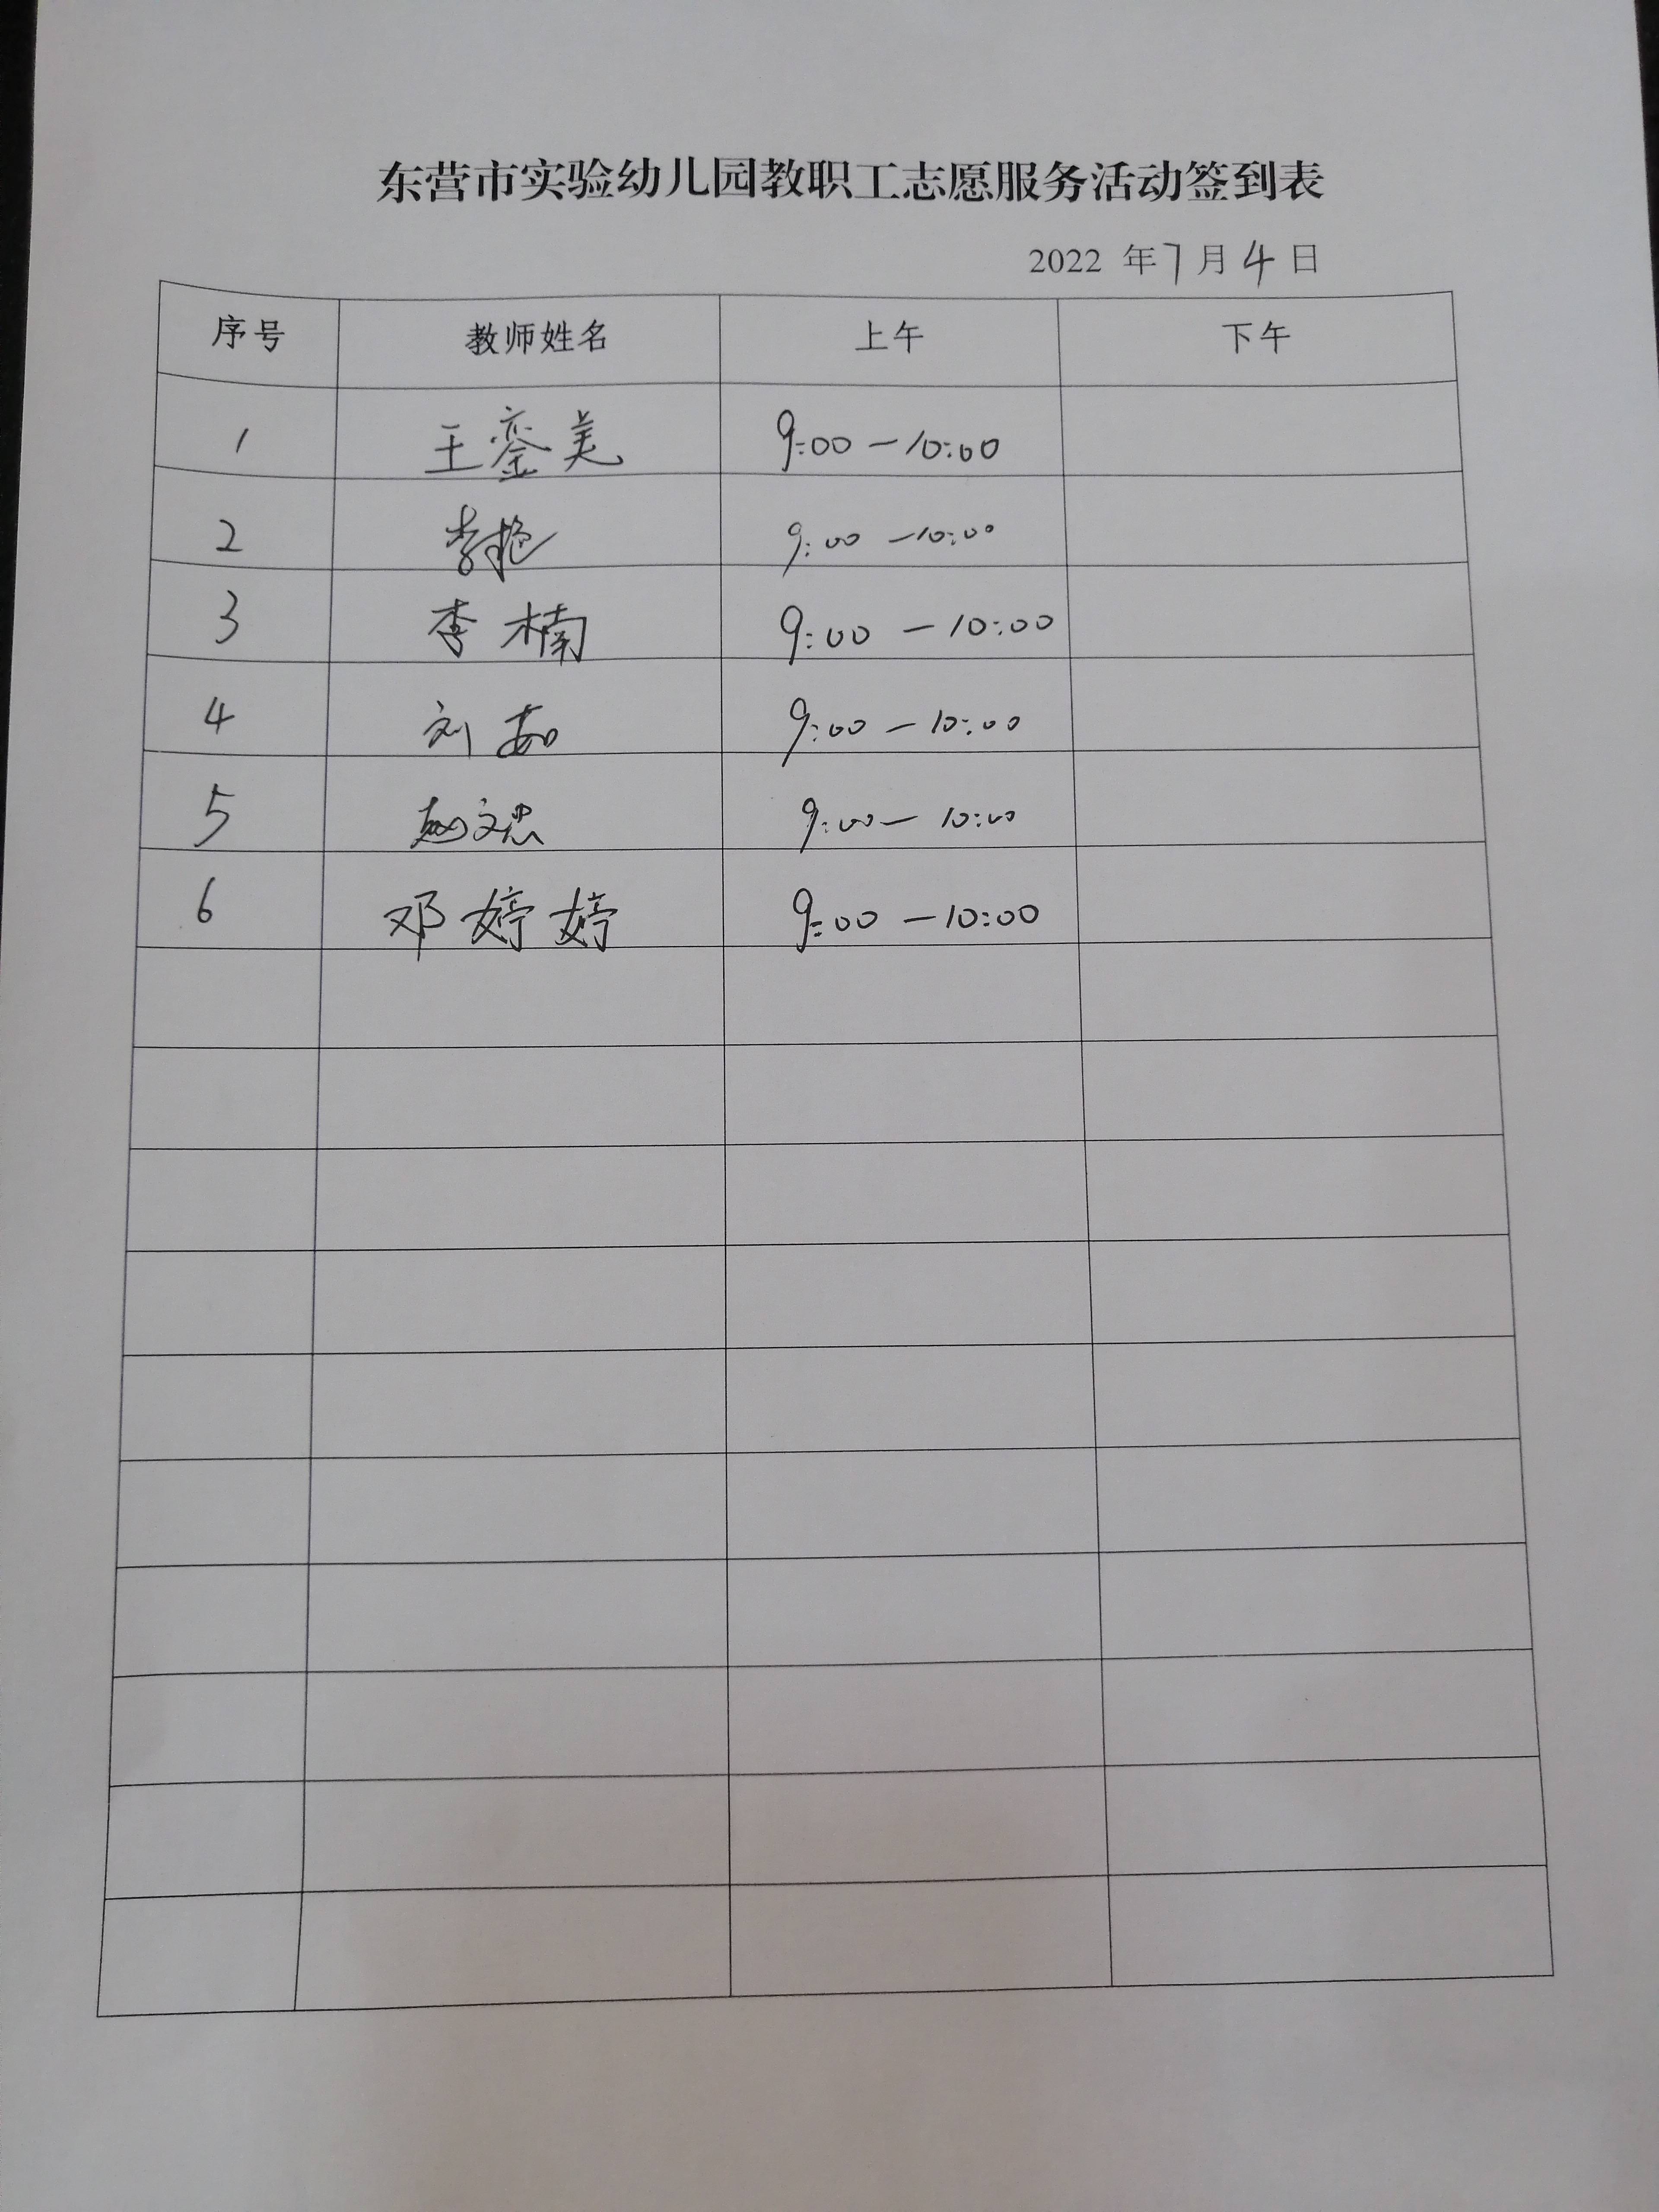 东营市实验幼儿园教职工志愿服务活动签到表
2022 年 7 月 4 日
序号 教师姓名 上午 下午
1 王銮美 9:00 — 10:00
2 李艳 9:00 — 10:00
3 李楠 9:00 — 10:00
4 刘茹 9:00 — 10:00
5 赵文忠 9:00 — 10:00
6 邓婷婷 9:00 — 10:00